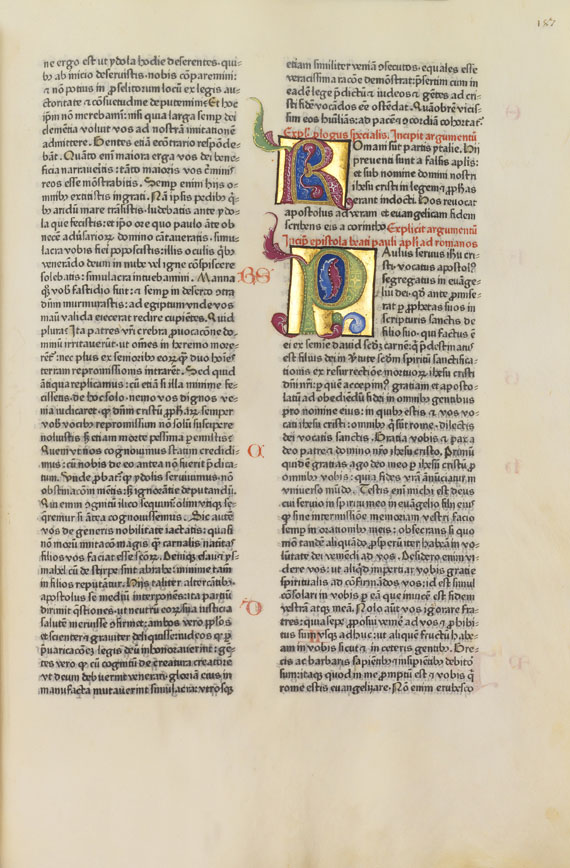 187
ne ergo est ut ydola hodie deserentes· qui-
bꝰ ab inicio deservistis· nobis cōparemini:
⁊ nō potius in ꝓselitorum locū ex legis au-
ctoritate ⁊ cōsuetudine deputemini· Et hoc
ip̄m nō merebamini: nisi quia larga semp dei
clementia voluit vos ad nostrā imitationē
admittere· Gentes etiā ecōtrario respōde-
bāt· Quāto eni maiora erga vos dei bene-
ficia narraveritis: tāto maioris vos c̄minis
reos esse mōstrabitis· Semp enim hiis o-
mnibꝰ extitistis ingrati· Nā ipsis pedibꝰ qⁱ-
bꝰ aridū mare trāsistis: ludebatis ante ydo-
la que fecistis: et ip̄o ore quo paulo āte ob
necē adūsarioꝝ domino cātaveratis· simu-
lacra vobis fieri poposcistis: illis oculis qⁱbꝰ
venerādo deum in nube vel igne cōspicere
solebatis: simulacra intuebamini· Manna
qꝫ vobꝰ fastidio fuit: ⁊ semp in deserto cōtra
dn̄m murmurastis: ad egiptum unde vos
manu valida eiecerat redire cupientes· Quid
plura: Ita patres vr̄i crebra ꝓvocacōne do-
minū irritaverūt: ut omēs in heremo more-
rēt̄: nec plus ex senioribꝰ eoꝝ qꝫ duo hoīes
terram repromissionis intrarēt· Sed quid
ātiqua replicamus: cū etiā si illa minime fe-
cissetis· de hoc solo· nemo vos dignos ve-
nia iudicaret: qꝫ dn̄m cristū ꝓph̄aꝝ semper
vobꝰ vocibꝰ repromissum nō solū suscipere
noluistis: sꝫ etiam morte pessima peremistis·
Quem ut nos cognovimus statim credidi-
mus: cū nobis de eo antea nō fuerit p̄dica-
tum· Unde ꝓbat̄ qꝫ ydolis servivimus· nō
obstinacōni mētis: sꝫ ignorātie deputandū·
Qui enim agnitū ilico sequimur· olim utiqꝫ se-
querēmur si ātea cognovissemus· Sic autē
vos de generis nobilitate iactatis: quasi
nō morū imitacō magis qꝫ carnalis nativitas
filios vos faciat esse sc̄oꝝ· Deniqꝫ esau et ys-
mahel cū de stirpe sint abrahe: minime tamē
in filios reputātur· Hiis taliter altercātibꝰ·
apostolus se mediū interponens: ita partiū
dirimit q̄stiones· ut neutrū eoꝝ sua iusticia
salutē meruisse cōfirmet: ambos vero ꝓpl̄os
et scienter ⁊ graviter deliquisse: iudeos qꝫ ꝑ
p̄varicacōnē legis deū inhonoraverint: gē-
tes vero qꝫ cū cognitū de creatura creatorē
ut deum debuerint venerari· gloriā eius in
manufacta mutaverint simulacra: utrosqꝫ
etiam similiter veniā ↄsecutos· equales esse
veracissima racōe demōstrat: p̄sertim cum in
eadē lege p̄dictū ⁊ iudeos ⁊ gētes ad cri-
sti fidē vocādos eē ostēdat· Quāobrē vicis-
sim eos hūilias: ad pacē ⁊ cōcordiā cohortat̄·
Expl̄· plogus specialis· Incipit argumentū
Romani sunt partis ytalie· Hii
preventi sunt a falsis apl̄is:
et sub nomine domini nostri
ihesu cristi in legem ⁊ ꝓph̄as
erant inducti· Hos revocat
apostolus ad veram et euangelicam fidem
scribens eis a corintho· Explicit argumentū
Incip̄ epistola beati pauli apl̄i ad romanos
Paulus servus ih̄u cri-
sti· vocatus apostolꝰ
segregatus in euāge-
liū dei· qd̄ ante ꝓmise-
rat ꝑ ꝓphetas suos in
scripturis sanctis de
filio suo· qui factus ē
ei ex semie david scd̄ꝫ carnē: qⁱ p̄destinatꝰ
est filius dei in v̄tute scd̄m spiritū sanctifica-
tionis ex resurrectiōe mortuoꝝ ihesu cristi
dn̄i nr̄i: ꝑ quē accepimꝰ gratiam et aposto-
latū ad obediendū fidei in omnibꝰ gentibus
pro nomine eius: in quibꝰ estis ⁊ vos vo-
cati ihesu cristi: omnibꝰ qⁱ sūt rome· dilectis
dei vocatis sanctis· Gratia vobis ⁊ pax a
deo patre ⁊ domino nr̄o ihesu cristo· Primū
quidē gratias ago deo meo ꝑ ihesū cristū ꝓ
omnibꝰ vobis: quia fides vr̄a ānūciatur in
universo mūdo· Testis eni michi est deus
cui servio in spiritu meo in euāgelio filii eiꝰ
qꝫ sine intermissiōe memoriam vestri facio
semp in orationibꝰ meis: obsecrans si quo
mō tandē aliquādo ꝓsperū iter habeā in vo-
lūtate dei veniēdi ad vos· Desidero enim vi-
dere vos: ut aliqd̄ impertiar vobis gratie
spiritualis ad cōfirmādos vos: id est simul
cōsolari in vobis ꝑ eā que invicē est fidem
vestrā atqꝫ meā· Nolo aūt vos ignorare fra-
tres: quia sepe ꝓposui venire ad vos ⁊ ꝓhibi-
tus sum usqꝫ adhuc: ut aliquē fructū habe-
am in vobis sicut ⁊ in ceteris gentibꝰ· Gre-
cis ac barbaris sapientibꝰ ⁊ insipientibꝰ debitor
sum: itaqꝫ quod in me ꝓmptū est ⁊ vobis qⁱ
rome estis euangelizare· Nō enim erubesco